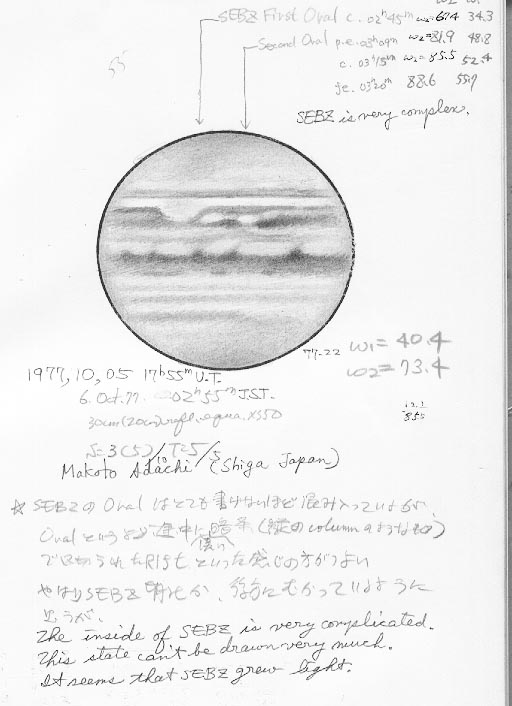 ω2 ω1
SEBZ First Oval c. 02h45m ω2=67.4 34.3
Second Oval p.e. 03h09m ω2=81.9 48.8
c. 03h15m ω2=85.5 52.4
fe. 03h20m 88.6 55.7
SEBZ is very complex.
77-22 ω1=40.4
ω2=73.4
1977, 10, 05 17h55m U.T.
6. Oct. 77. 02h55m J.S.T.
30cm (20cm) refl. aqua. X350
S=3(5)/10 T=5/5
Makoto Adachi (Shiga Japan)
☆ SEBZの Oval はとても書けないほど混み入っているが、
Oval というより途中に暗条 (縦の column のようなもの)
で区切られたRiftといった感じの方がつよい
やはりSEBZ 明化か、 にむかっているように
思うが、
The inside of SEBZ is very complicated.
This state can't be drawn very much.
It seems that SEBZ grew light.